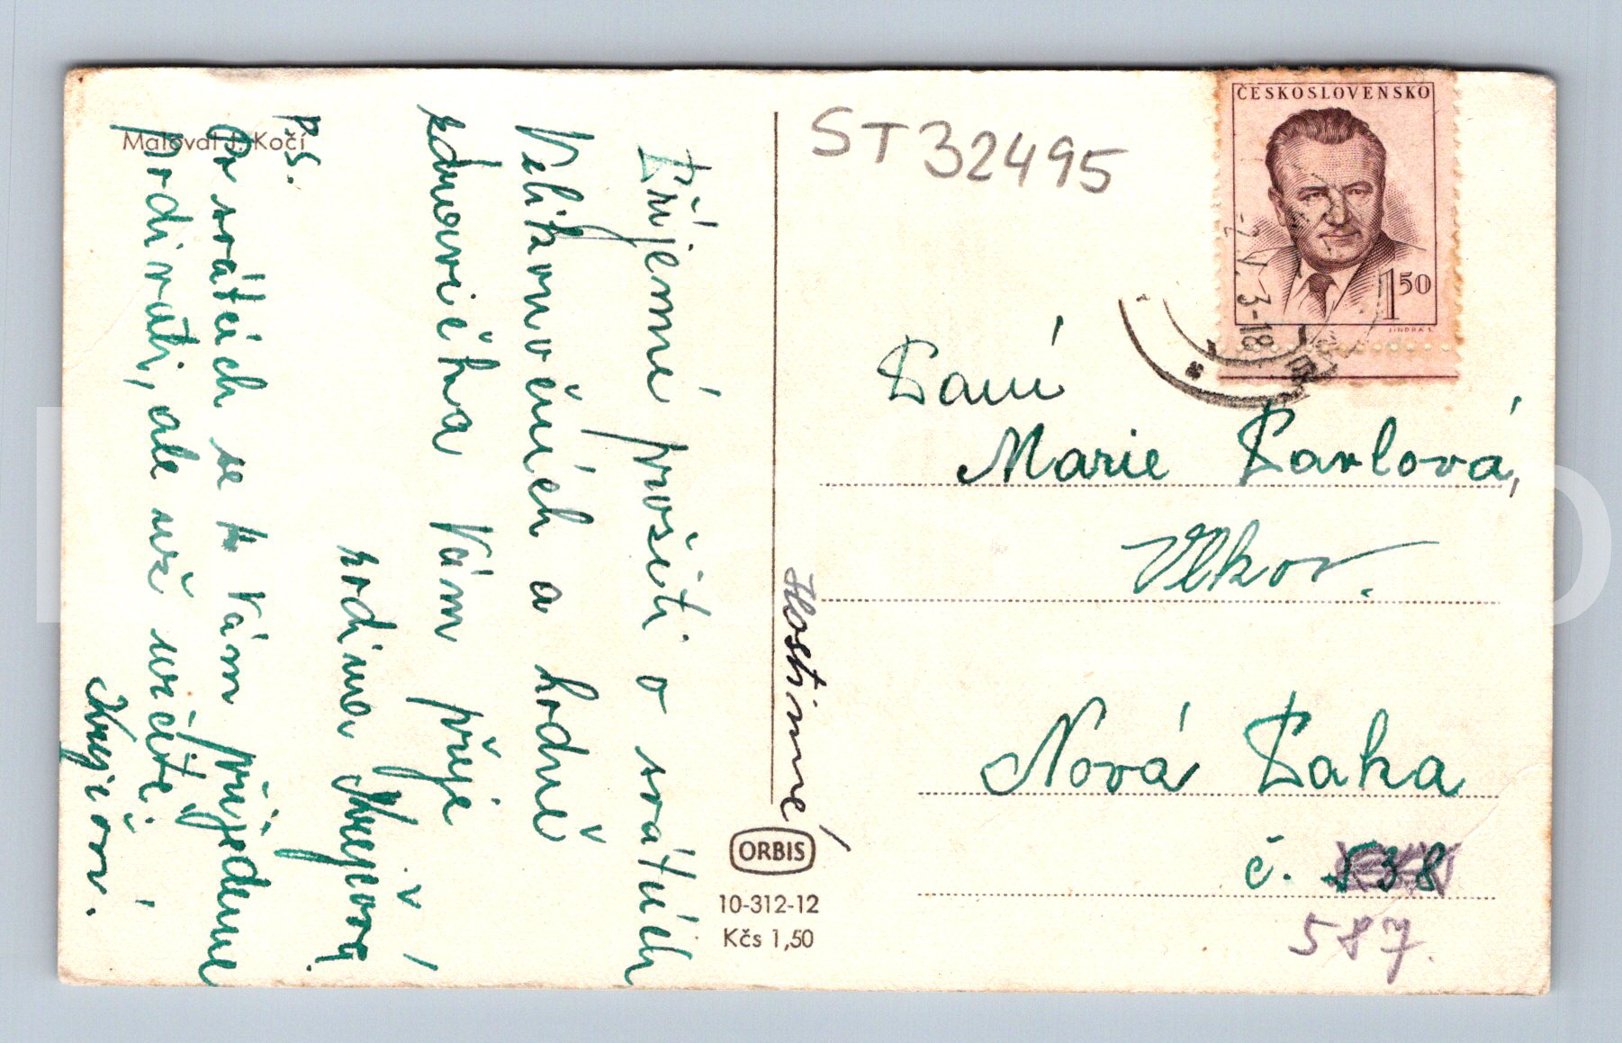 Maloval J. Kočí
Příjemné prožití o svátcích
Velikonočních a hodně
zdravíčka Vám přeje
rodina Krejčova
P.S.
Po svátcích se k Vám přijedeme
podívati, ale už určitě!
Krejčovi.
ST32495
ČESKOSLOVENSKO
1 50
JINDRA S.
-2.IV.53-18
Paní
Marie Pavlová,
Vlkov.
Hostinné
Nová Paka
č. 538
587.
ORBIS
10-312-12
Kčs 1,50